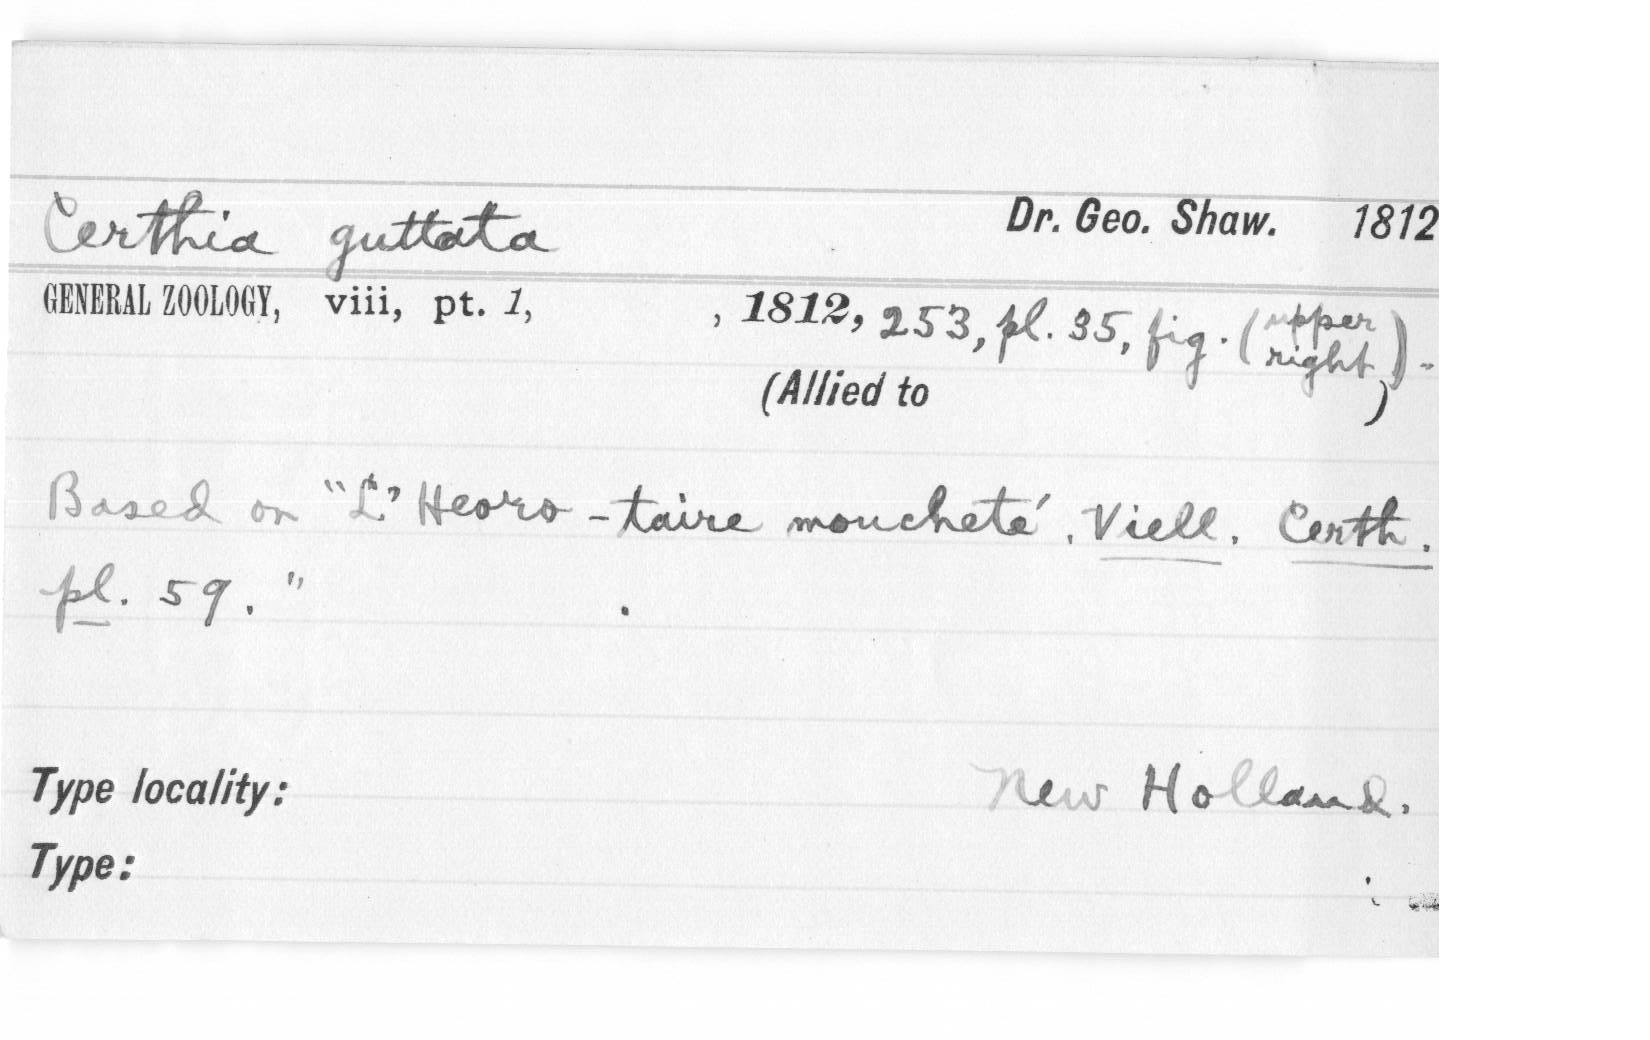 Certhia guttata Dr. Geo. Shaw. 1812
GENERAL ZOOLOGY, viii, pt. 1, , 1812, 253, pl. 35, fig. (upper right).
(Allied to )
Based on "L' Heoro-taire moucheté, Viell. Certh.
pl. 59."
Type locality: New Holland.
Type: